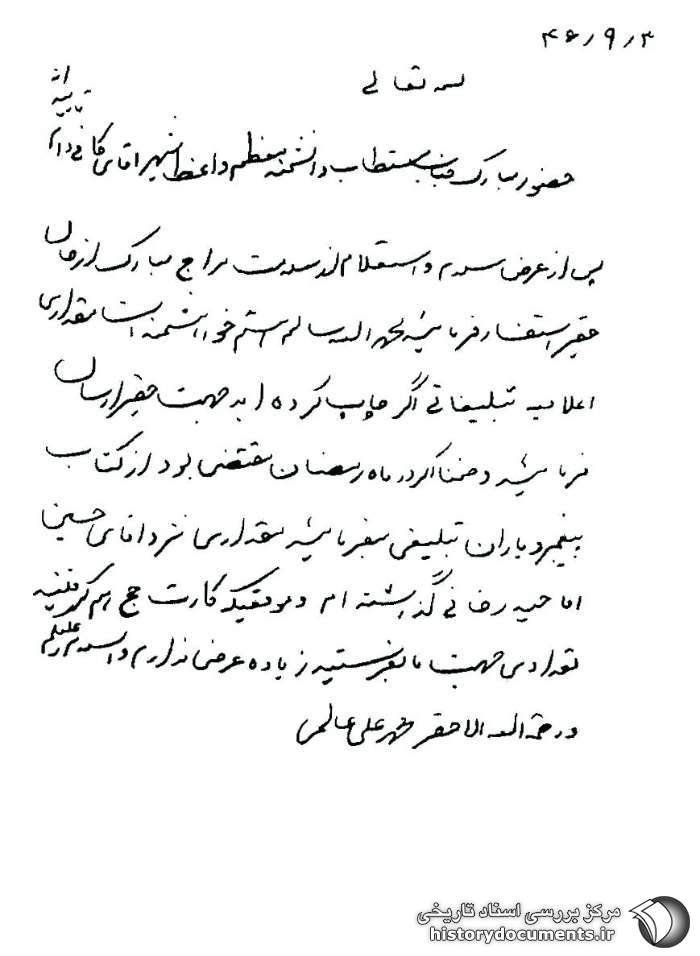 ۴۶/۹/۳
بسمه تعالی
حضور مبارک جناب مستطاب دانشمند معظم واعظ شهیر آقای کافی دام
تأییداته
پس از عرض سلام و استعلام از سلامت مزاج مبارک از حال
حقیر استفسار فرمائید بحمدالله سالم هستم خواهشمند است مقداری
اعلامیه تبلیغاتی اگر چاپ کرده اید جهت حقیر ارسال
فرمائید و ضمنا اگر در ماه رمضان مقتضی بود از کتاب
پیغمبر و یاران تبلیغی بفرمائید مقداری نزد آقای حسین
آقا رضائی گذاشته ام و موقعیکه کارت حج اسم
تعدادی جهت ما بفرستید زیاده عرضی ندارم والسلام علیکم
ورحمة الله الاحقر محمد علی عالمی
مرکز بررسی اسناد تاریخی
historydocuments.ir